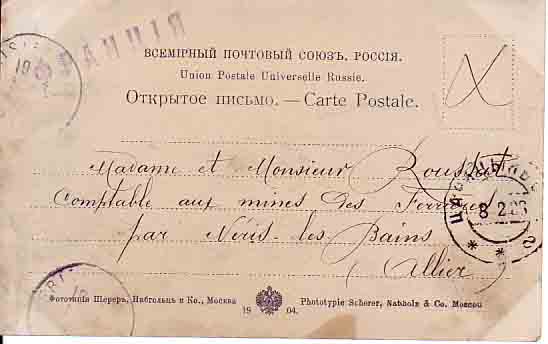 ФРАНЦІЯ
ВСЕМІРНЫЙ ПОЧТОВЫЙ СОЮЗЪ. РОССІЯ.
Union Postale Universelle Russie.
Открытое письмо. — Carte Postale.
Madame et Monsieur
Comptable aux mines des Ferrières
par Néris-les Bains
(Allier)
8 2
Фототипія Шереръ, Набгольцъ и Ко., Москва
1904.
Phototypie Scherer, Nabholz & Co. Moscou